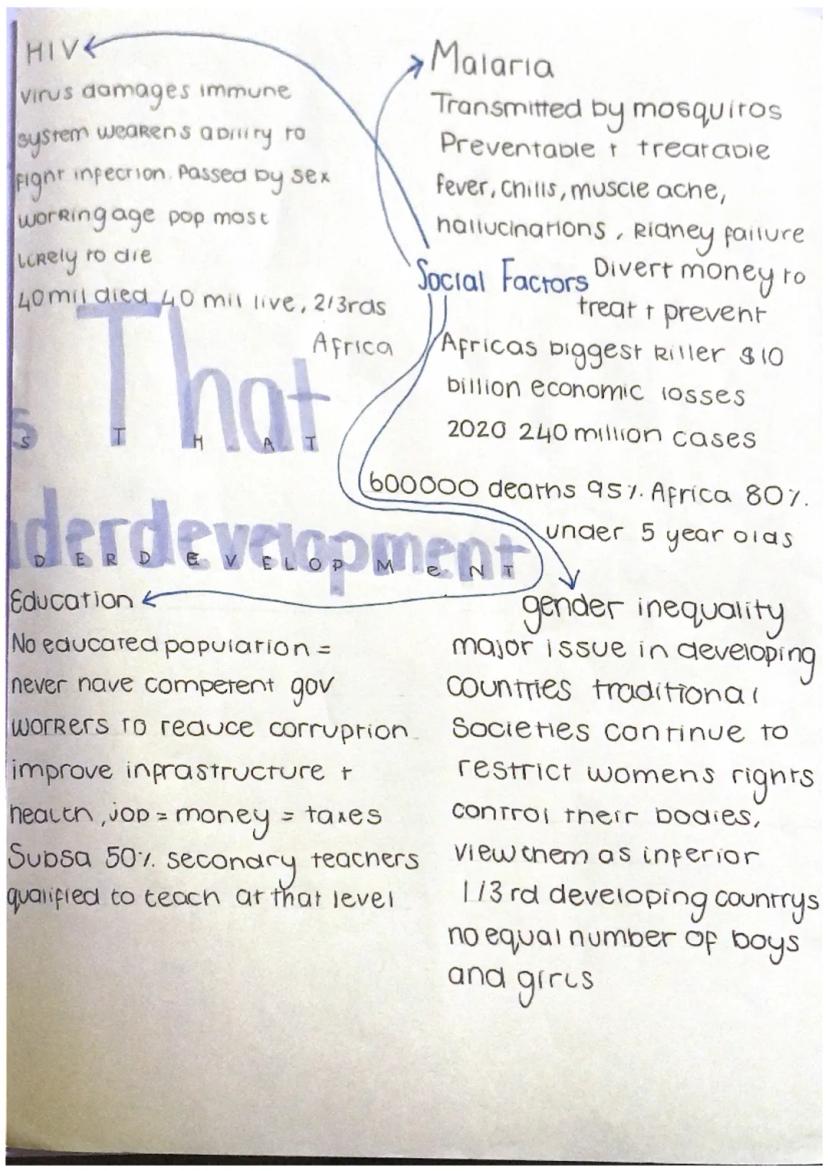 HIV
virus damages immune
system weakens ability to
fight infection. Passed by sex
working age pop most
likely to die
40mil died 40 mil live, 2/3rds
Africa
Malaria
Transmitted by mosquitos
Preventable + treatable
fever, chills, muscle ache,
hallucinations, kidney failure
Divert money to
treat + prevent
Africas biggest killer $10
billion economic losses
2020 240 million cases
600000 deaths 95% Africa 80%
under 5 year olds
Social Factors
s That
S T H A T
derdevelopment
D E R D E V E L O P M e N T
Education
No educated population =
never have competent gov
workers to reduce corruption
improve infrastructure +
health, jop = money = taxes
Subsa 50% secondry teachers
qualified to teach at that level
gender inequality
major issue in developing
countries traditional
Societies continue to
restrict womens rights
control their bodies,
view them as inferior
1/3 rd developing countrys
no equal number of boys
and girls